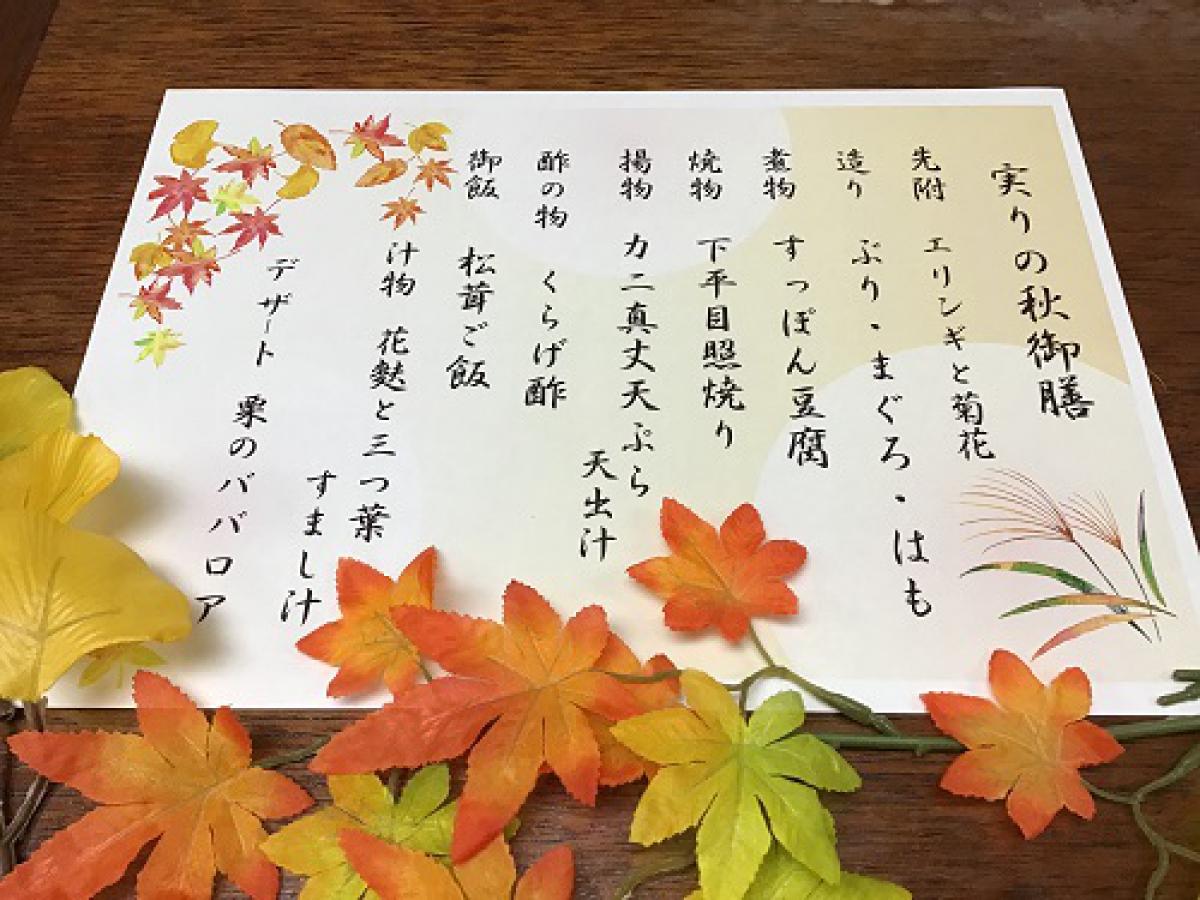 実りの秋御膳
先附 エリンギと菊花
造り ぶり・まぐろ・はも
煮物 すっぽん豆腐
焼物 下平目照焼り
揚物 カニ真丈天ぷら
天出汁
酢の物 くらげ酢
御飯 松茸ご飯
汁物 花麩と三つ葉
すまし汁
デザート 栗のババロア